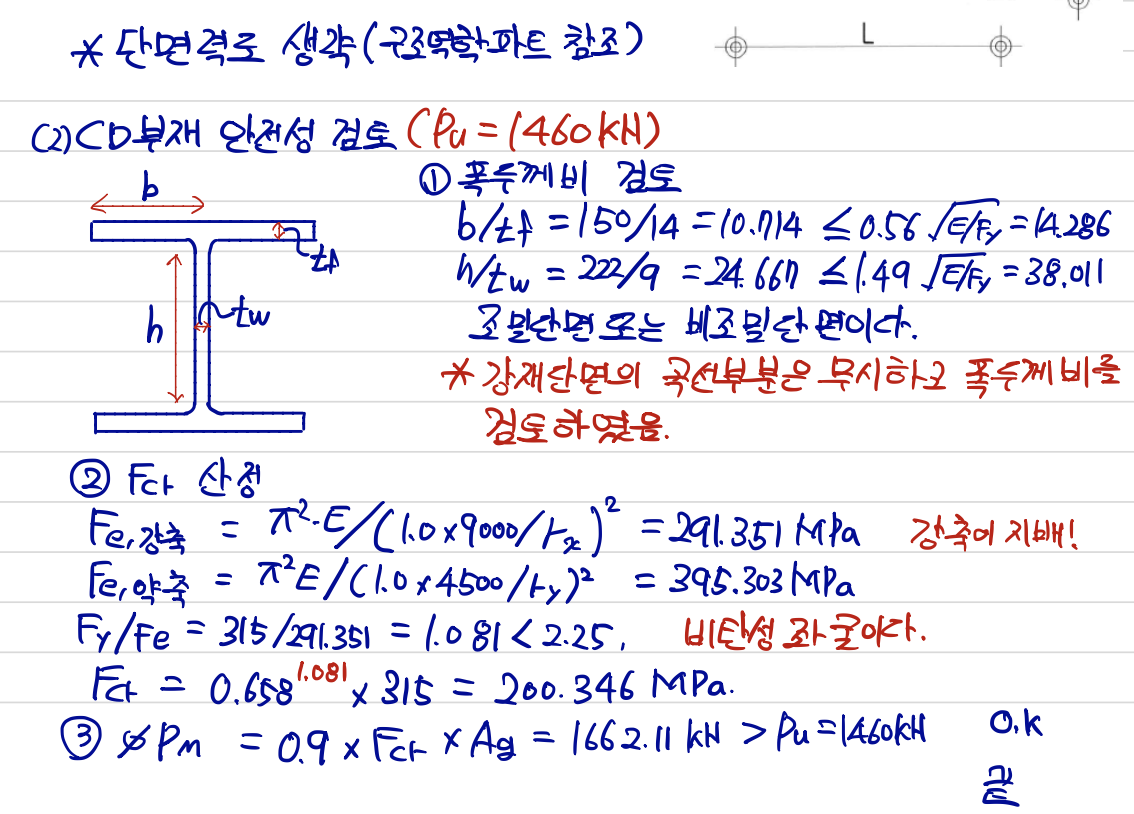 * 단면력도 생략(구조역학파트 참조)
L
(2) CD부재 안전성 검토 (Pu = 1460kN)
① 폭두께비 검토
b
b/tf = 150/14 = 10.714 ≤ 0.56 √E/Fy = 14.286
tf
h/tw = 222/9 = 24.667 ≤ 1.49 √E/Fy = 38.011
h
tw
조밀단면 또는 비조밀단면이다.
* 강재단면의 곡선부분은 무시하고 폭두께비를
검토하였음.
② Fcr 산정
Fe,강축 = π²·E/(1.0×9000/rx)² = 291.351 MPa 강축이 지배!
Fe,약축 = π²E/(1.0×4500/ry)² = 395.303 MPa
Fy/Fe = 315/291.351 = 1.081 < 2.25, 비탄성 좌굴이다.
Fcr = 0.658^1.081 × 315 = 200.346 MPa.
③ øPn = 0.9 × Fcr × Ag = 1662.11 kN > Pu = 1460kN O.K
끝